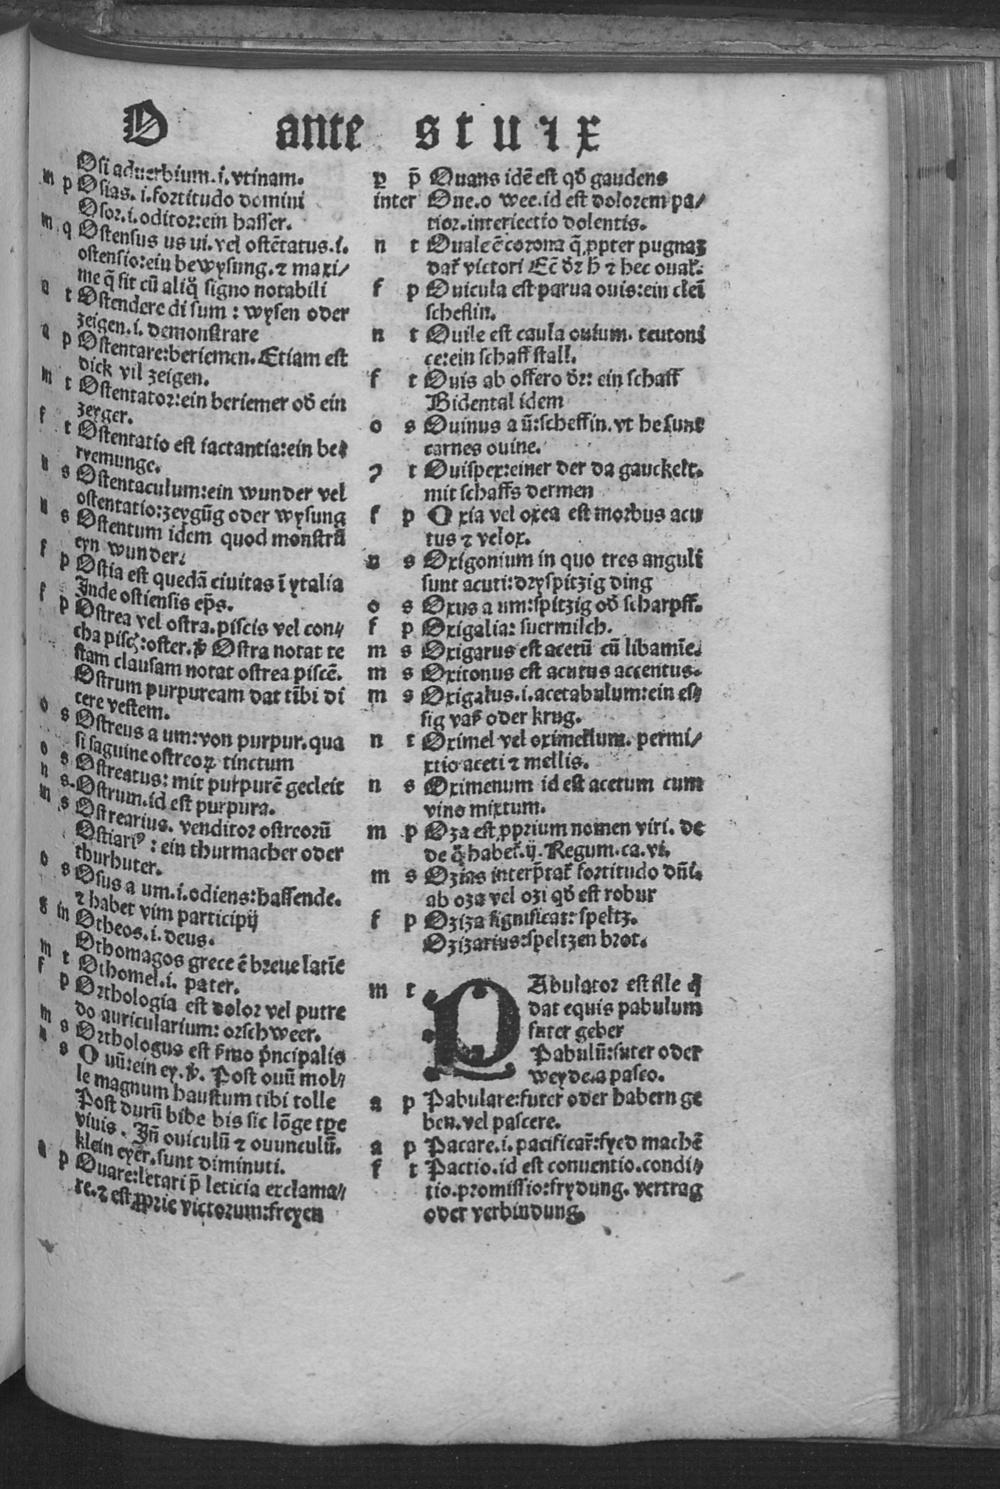 O ante s t u ⁊ x
Osi aduerbium.i.vtinam.
m p Osias.i.fortitudo domini
Osor.i.oditor:ein hasser.
m q Ostensus us ui.vel ostẽtatus.i.
ostensio:ein bewysung.⁊ maxi/
me q̃ sit cũ aliq̃ signo notabili
a t Ostendere di sum : wysen oder
zeigen.i.demonstrare
a p Ostentare:beriemen.Etiam est
dick vil zeigen.
m t Ostentator:ein beriemer od̕ ein
zeyger.
f t Ostentatio est iactantia:ein be⸗
ryemunge.
n s Ostentaculum:ein wunder vel
ostentatio:zeygũg oder wysung
n s Ostentum idem quod monstrũ
eyn wunder.
f p Ostia est quedã ciuitas ĩ ytalia
Inde ostiensis ep̃s.
f p Ostrea vel ostra.piscis vel con⸗
cha pisc̃:oster.ꝟ̕ Ostra notat te
stam clausam notat ostrea piscẽ.
Ostrum purpuream dat tibi di
cere vestem.
o s Ostreus a um:von purpur.qua
si saguine ostreoꝝ tinctum
o s Ostreatus: mit purpurẽ gecleit
n s Ostrum.id est purpura.
m s Ostrearius. venditor ostreorũ
Ostiariꝰ : ein thurmacher oder
thurhuter.
o s Osus a um.i.odiens:hassende.
⁊ habet vim participij
g in Otheos.i.deus.
Othomagos grece ẽ breue latĩe
m t Othomel.i. pater.
f p Orthologia est dolor vel putre
do auricularium: orschweer.
m s Orthologus est ẜmo p̃ncipalis
n s Ouũ:ein ey.ꝟ̕. Post ouũ mol⸗
le magnum haustum tibi tolle
Post durũ bibe bis sic lõge tpe
viuis . Iñ ouiculũ ⁊ ouunculũ.
klein eyer.sunt diminuti.
a p Ouare:letari p̃ leticia exclama⸗
re.⁊ est ꝓprie victorum:freyen
p p̃ Ouans idẽ est qd̕ gaudens
inter Oue.o wee.id est dolorem pa/
tior.interiectio dolentis.
n t Ouale ẽ corona q̃ ꝓpter pugnaꝫ
dat̕ victori Ec̃ dr̃ h̕ ⁊ hec oual̕.
f p Ouicula est parua ouis:ein cleĩ
scheflin.
n t Ouile est caula ouium. teutoni
ce:ein schaff stall.
f t Ouis ab offero dr̃: ein schaff
Bidental idem
o s Ouinus a ũ:scheffin.vt he sunt
carnes ouine.
ꝯ t Ouispex:einer der da gauckelt.
mit schaffs dermen
f p Oxia vel oxea est morbus acu
tus ⁊ velox.
n s Oxigonium in quo tres anguli
sunt acuti:dryspitzig ding
o s Oxus a um:spitzig od̕ scharpff.
f p Oxigalia: suermilch.
m s Oxigarus est acetũ cũ libamĩe.
m s Oxitonus est acutus accentus.
m s Oxigalus.i.acetabulum:ein es⸗
sig vaß oder krug.
n t Oximel vel oximellum. permi/
xtio aceti ⁊ mellis.
n s Oximenum id est acetum cum
vino mixtum.
m p Oza est ꝓprium nomen viri. de
de q̃ habet̕.ij.Regum.ca.vi.
m s Ozias interp̃tat̕ fortitudo dñi.
ab oza vel ozi qd̕ est robur
f p Oziza significat: speltz.
Ozizarius:speltzen brot.
m t PAbulator est ille q̃
dat equis pabulum
futer geber
Pabulũ:futer oder
weyde.a pasco.
a p Pabulare:futer̕ oder habern ge
ben.vel pascere.
a p Pacare.i.pacificar̃:fyed machẽ
f t Pactio.id est conuentio.condi⸗
tio.promissio:frydung.vertrag
oder verbindung.